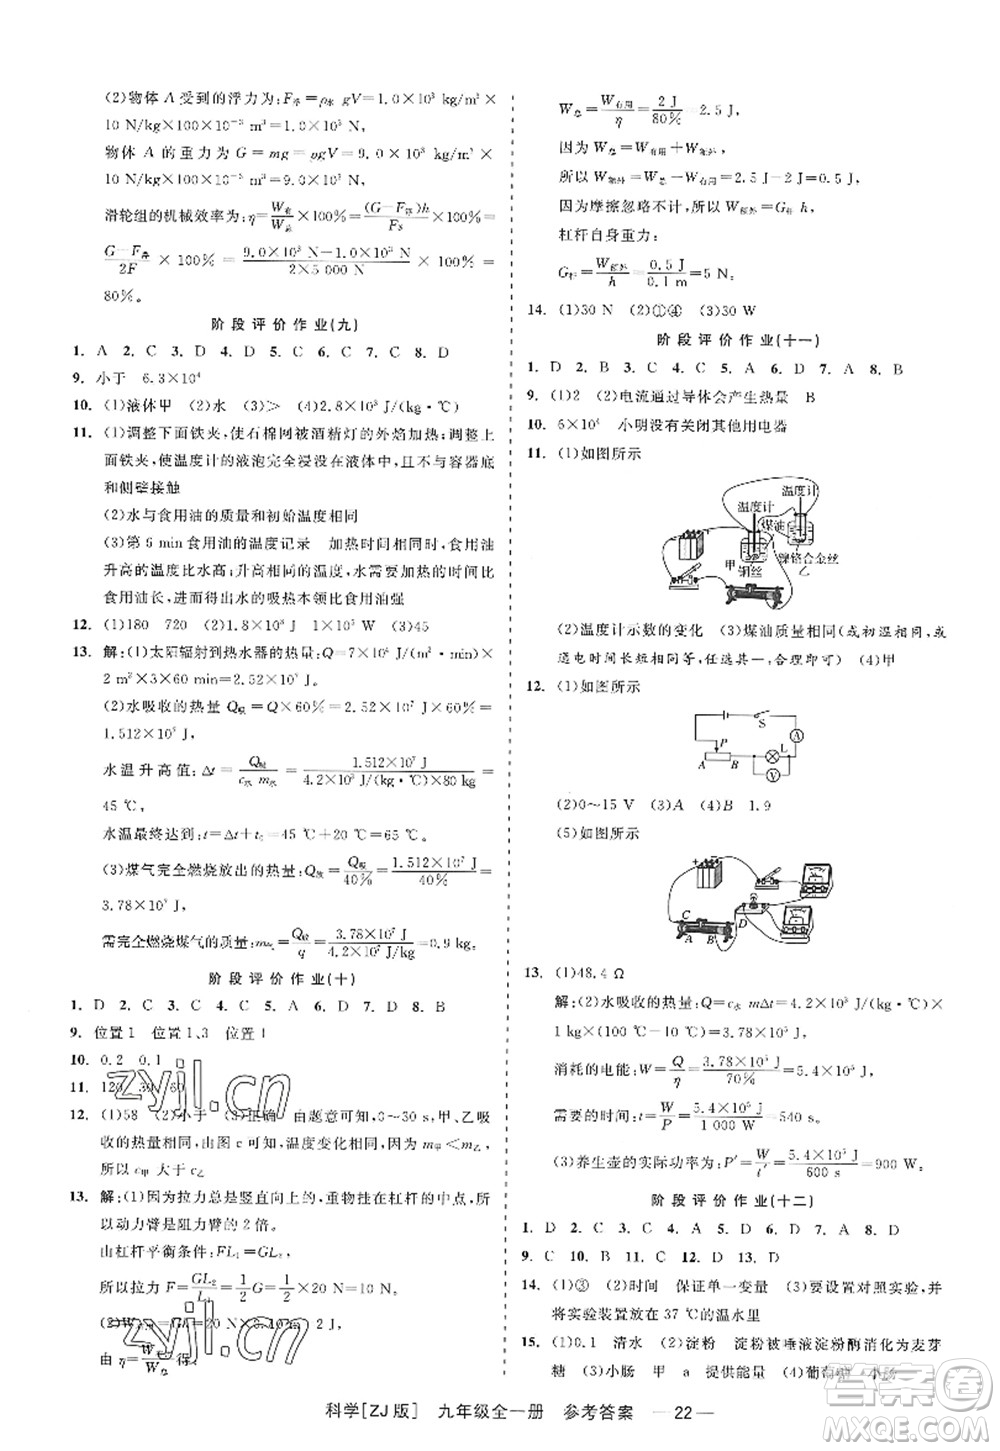 (2)物体 A 受到的浮力为:F浮=ρ水 gV=1.0×10³ kg/m³×
10 N/kg×100×10⁻³ m³=1.0×10³ N,
物体 A 的重力为 G=mg=ρgV=9.0×10³ kg/m³×
10 N/kg×100×10⁻³ m³=9.0×10³ N,
滑轮组的机械效率为:η=W有/W总×100%=(G-F浮)h/Fs×100%=
(G-F浮)/2F×100%=(9.0×10³ N-1.0×10³ N)/(2×5 000 N)×100%=
80%。
阶段评价作业(九)
1. A 2. C 3. D 4. D 5. C 6. C 7. B 8. D
9. 小于 6.3×10⁴
10. (1)液体甲 (2)水 (3)> (4)2.8×10³ J/(kg·℃)
11. (1)调整下面铁夹,使石棉网被酒精灯的外焰加热;调整上
面铁夹,使温度计的液泡完全浸没在液体中,且不与容器底
和侧壁接触
(2)水与食用油的质量和初始温度相同
(3)第 5 min 食用油的温度记录 加热时间相同时,食用油
升高的温度比水高;升高相同的温度,水需要加热的时间比
食用油长,得出水的吸热本领比食用油强
12. (1)180 720 (2)1.8×10³ J/(kg·℃) (3)45
13. 解:(1)太阳辐射到热水器的热量:Q=7×10⁴ J/(m²·min)×
2 m²×3×60 min=2.52×10⁷ J。
(2)水吸收的热量 Q吸=Q×60%=2.52×10⁷ J×60%=
1.512×10⁷ J,
水温升高值:Δt=Q吸/(c水 m水)=1.512×10⁷ J/(4.2×10³ J/(kg·℃)×80 kg)=
45 ℃,
水温最终达到:t=Δt+t₀=45 ℃+20 ℃=65 ℃。
(3)煤气完全燃烧放出的热量:Q放=Q吸/40%=1.512×10⁷ J/40%=
3.78×10⁷ J,
需完全燃烧煤气的质量:m煤气=Q放/q=3.78×10⁷ J/4.2×10⁷ J/kg=0.9 kg。
阶段评价作业(十)
1. D 2. C 3. D 4. C 5. C 6. A 7. D 8. B
9. 位置1 位置1、3 位置1
10. 0.2 0.1
11. 120 30 60
12. (1)58 (2)小于 (3)正确 由题意可知,0~30 s,甲、乙吸
收的热量相同,由图 c 可知,温度变化相同,因为 m甲<m乙,
所以 c甲 大于 c乙
13. 解:(1)因为拉力总是竖直向上的,重物挂在杠杆的中点,所
以动力臂是阻力臂的 2 倍。
由杠杆平衡条件:FL₁=GL₂,
所以拉力 F=GL₂/L₁=1/2 G=1/2×20 N=10 N。
(2)W有用=Gh=20 N×0.1 m=2 J,
由 η=W有用/W总 得:
W总=W有用/η=2 J/80%=2.5 J,
因为 W总=W有用+W额外,
所以 W额外=W总-W有用=2.5 J-2 J=0.5 J,
因为摩擦忽略不计,所以 W额外=G杆 h,
杠杆自身重力:
G杆=W额外/h=0.5 J/0.1 m=5 N。
14. (1)30 N (2)①④ (3)30 W
阶段评价作业(十一)
1. D 2. B 3. C 4. C 5. A 6. D 7. A 8. B
9. (1)2 (2)电流通过导体会产生热量 B
10. 6×10⁶ 小明没有关闭其他用电器
11. (1)如图所示
温度计 温度计
煤油
甲 铜丝 镍铬合金丝 乙
(2)温度计示数的变化 (3)煤油质量相同(或初温相同,或
通电时间长短相同等,任选其一,合理即可) (4)甲
12. (1)如图所示
S
A
P
L
A B
V
(2)0~15 V (3)A (4)B 1.9
(5)如图所示
C D
A B
13. (1)48.4 Ω
解:(2)水吸收的热量:Q=c水 mΔt=4.2×10³ J/(kg·℃)×
1 kg×(100 ℃-10 ℃)=3.78×10⁵ J,
消耗的电能:W=Q/η=3.78×10⁵ J/70%=5.4×10⁵ J,
需要的时间:t=W/P=5.4×10⁵ J/1 000 W=540 s。
(3)养生壶的实际功率为:P′=W/t′=5.4×10⁵ J/600 s=900 W。
阶段评价作业(十二)
1. D 2. C 3. C 4. D 5. D 6. D 7. A 8. D
9. C 10. B 11. C 12. D 13. D
14. (1)③ (2)时间 保证单一变量 (3)要设置对照实验,并
将实验装置放在 37 ℃的温水里
15. (1)0.1 清水 (2)淀粉 淀粉被唾液淀粉酶消化为麦芽
糖 (3)小肠 甲 a 提供能量 (4)葡萄糖 小肠
科学[ZJ版] 九年级全一册 参考答案 —22—
zyjl.cn
zyjl.cn
答案圈